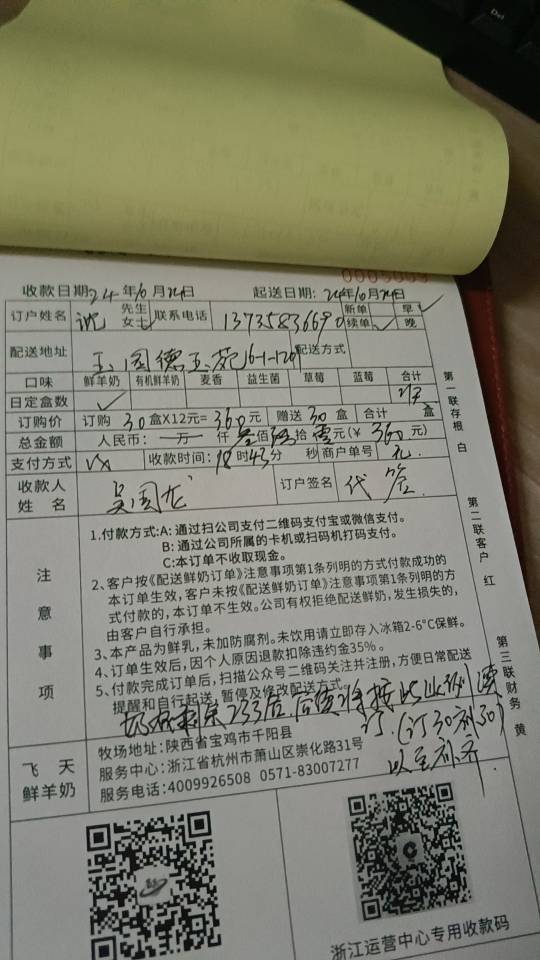 0005009
收款日期:24年10月24日 起送日期:24年10月24日
订户姓名 沈 先生 女士 联系电话 13735836690 新单 续单 ✓ 早 ✓ 晚
配送地址 玉园德玉苑6-1-1201 配送方式
口味 鲜羊奶 有机鲜羊奶 麦香 益生菌 草莓 蓝莓 合计
日定盒数 ✓
订购价 订购 30 盒X12元= 360 元 赠送 30 盒 合计 盒
总金额 人民币: 万 仟 叁佰 陆拾 零元(¥ 360 元)
支付方式 VX 收款时间: 18时43分 秒 商户单号
收款人姓名 吴国龙 订户签名 代签
注意事项
1.付款方式:A: 通过扫公司支付二维码支付宝或微信支付。
B: 通过公司所属的卡机或扫码机打码支付。
C:本订单不收取现金。
2、客户按《配送鲜奶订单》注意事项第1条列明的方式付款成功的
本订单生效,客户未按《配送鲜奶订单》注意事项第1条列明的方
式付款的,本订单不生效。公司有权拒绝配送鲜奶,发生损失的,
由客户自行承担。
3、本产品为鲜乳,未加防腐剂。未饮用请立即存入冰箱2-6°C保鲜。
4、订单生效后,因个人原因退款扣除违约金35%。
5、付款完成订单后,扫描公众号二维码关注并注册,方便日常配送
提醒和自行起送,暂停及修改配送方式。
233盒 续
订.(订30补30)
以至补齐
飞天
鲜羊奶
牧场地址:陕西省宝鸡市千阳县
服务中心:浙江省杭州市萧山区崇化路31号
服务电话:4009926508 0571-83007277
浙江运营中心专用收款码
第一联存根 白
第二联客户 红
第三联财务 黄